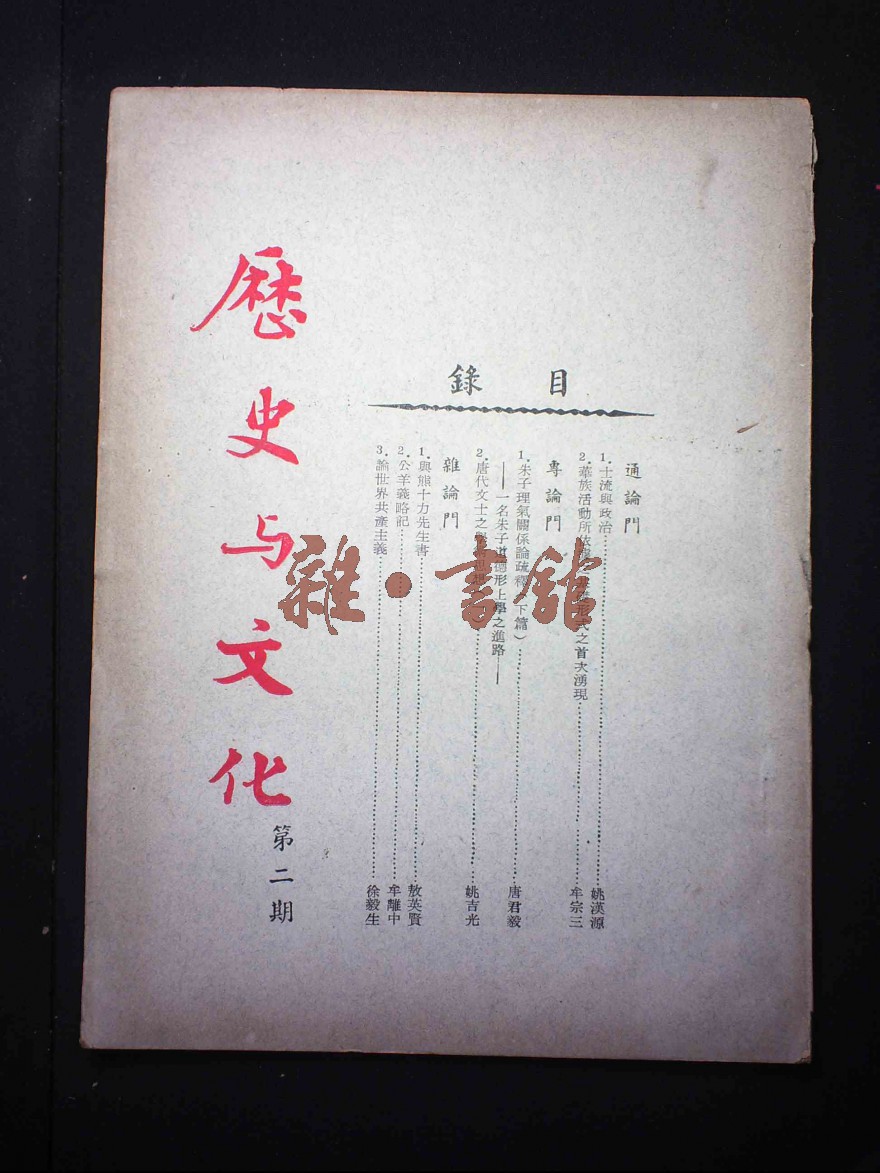 歷史与文化
第二期
目錄
通論門
1.士流與政治……姚漢源
2.華族活動所依據之基礎形式之首次湧現……牟宗三
專論門
1.朱子理氣關係論疏釋(下篇)……唐君毅
——一名朱子道德形上學之進路——
2.唐代文士之……姚吉光
雜論門
1.與熊十力先生書……敖英賢
2.公羊義略記……牟離中
3.論世界共產主義……徐毅生
雜·書館